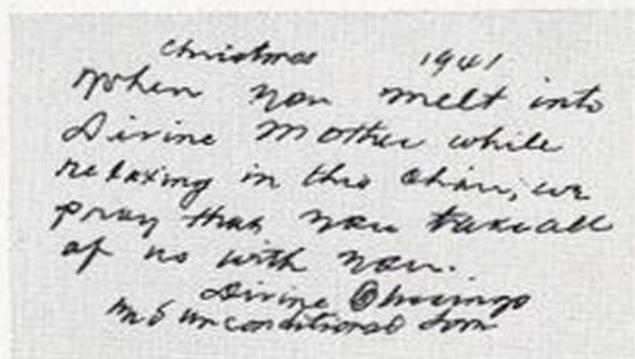 Christmas 1941
When you melt into
Divine Mother while
relaxing in this chair, we
pray that you take all
of us with you.
Divine Blessings
unconditional love